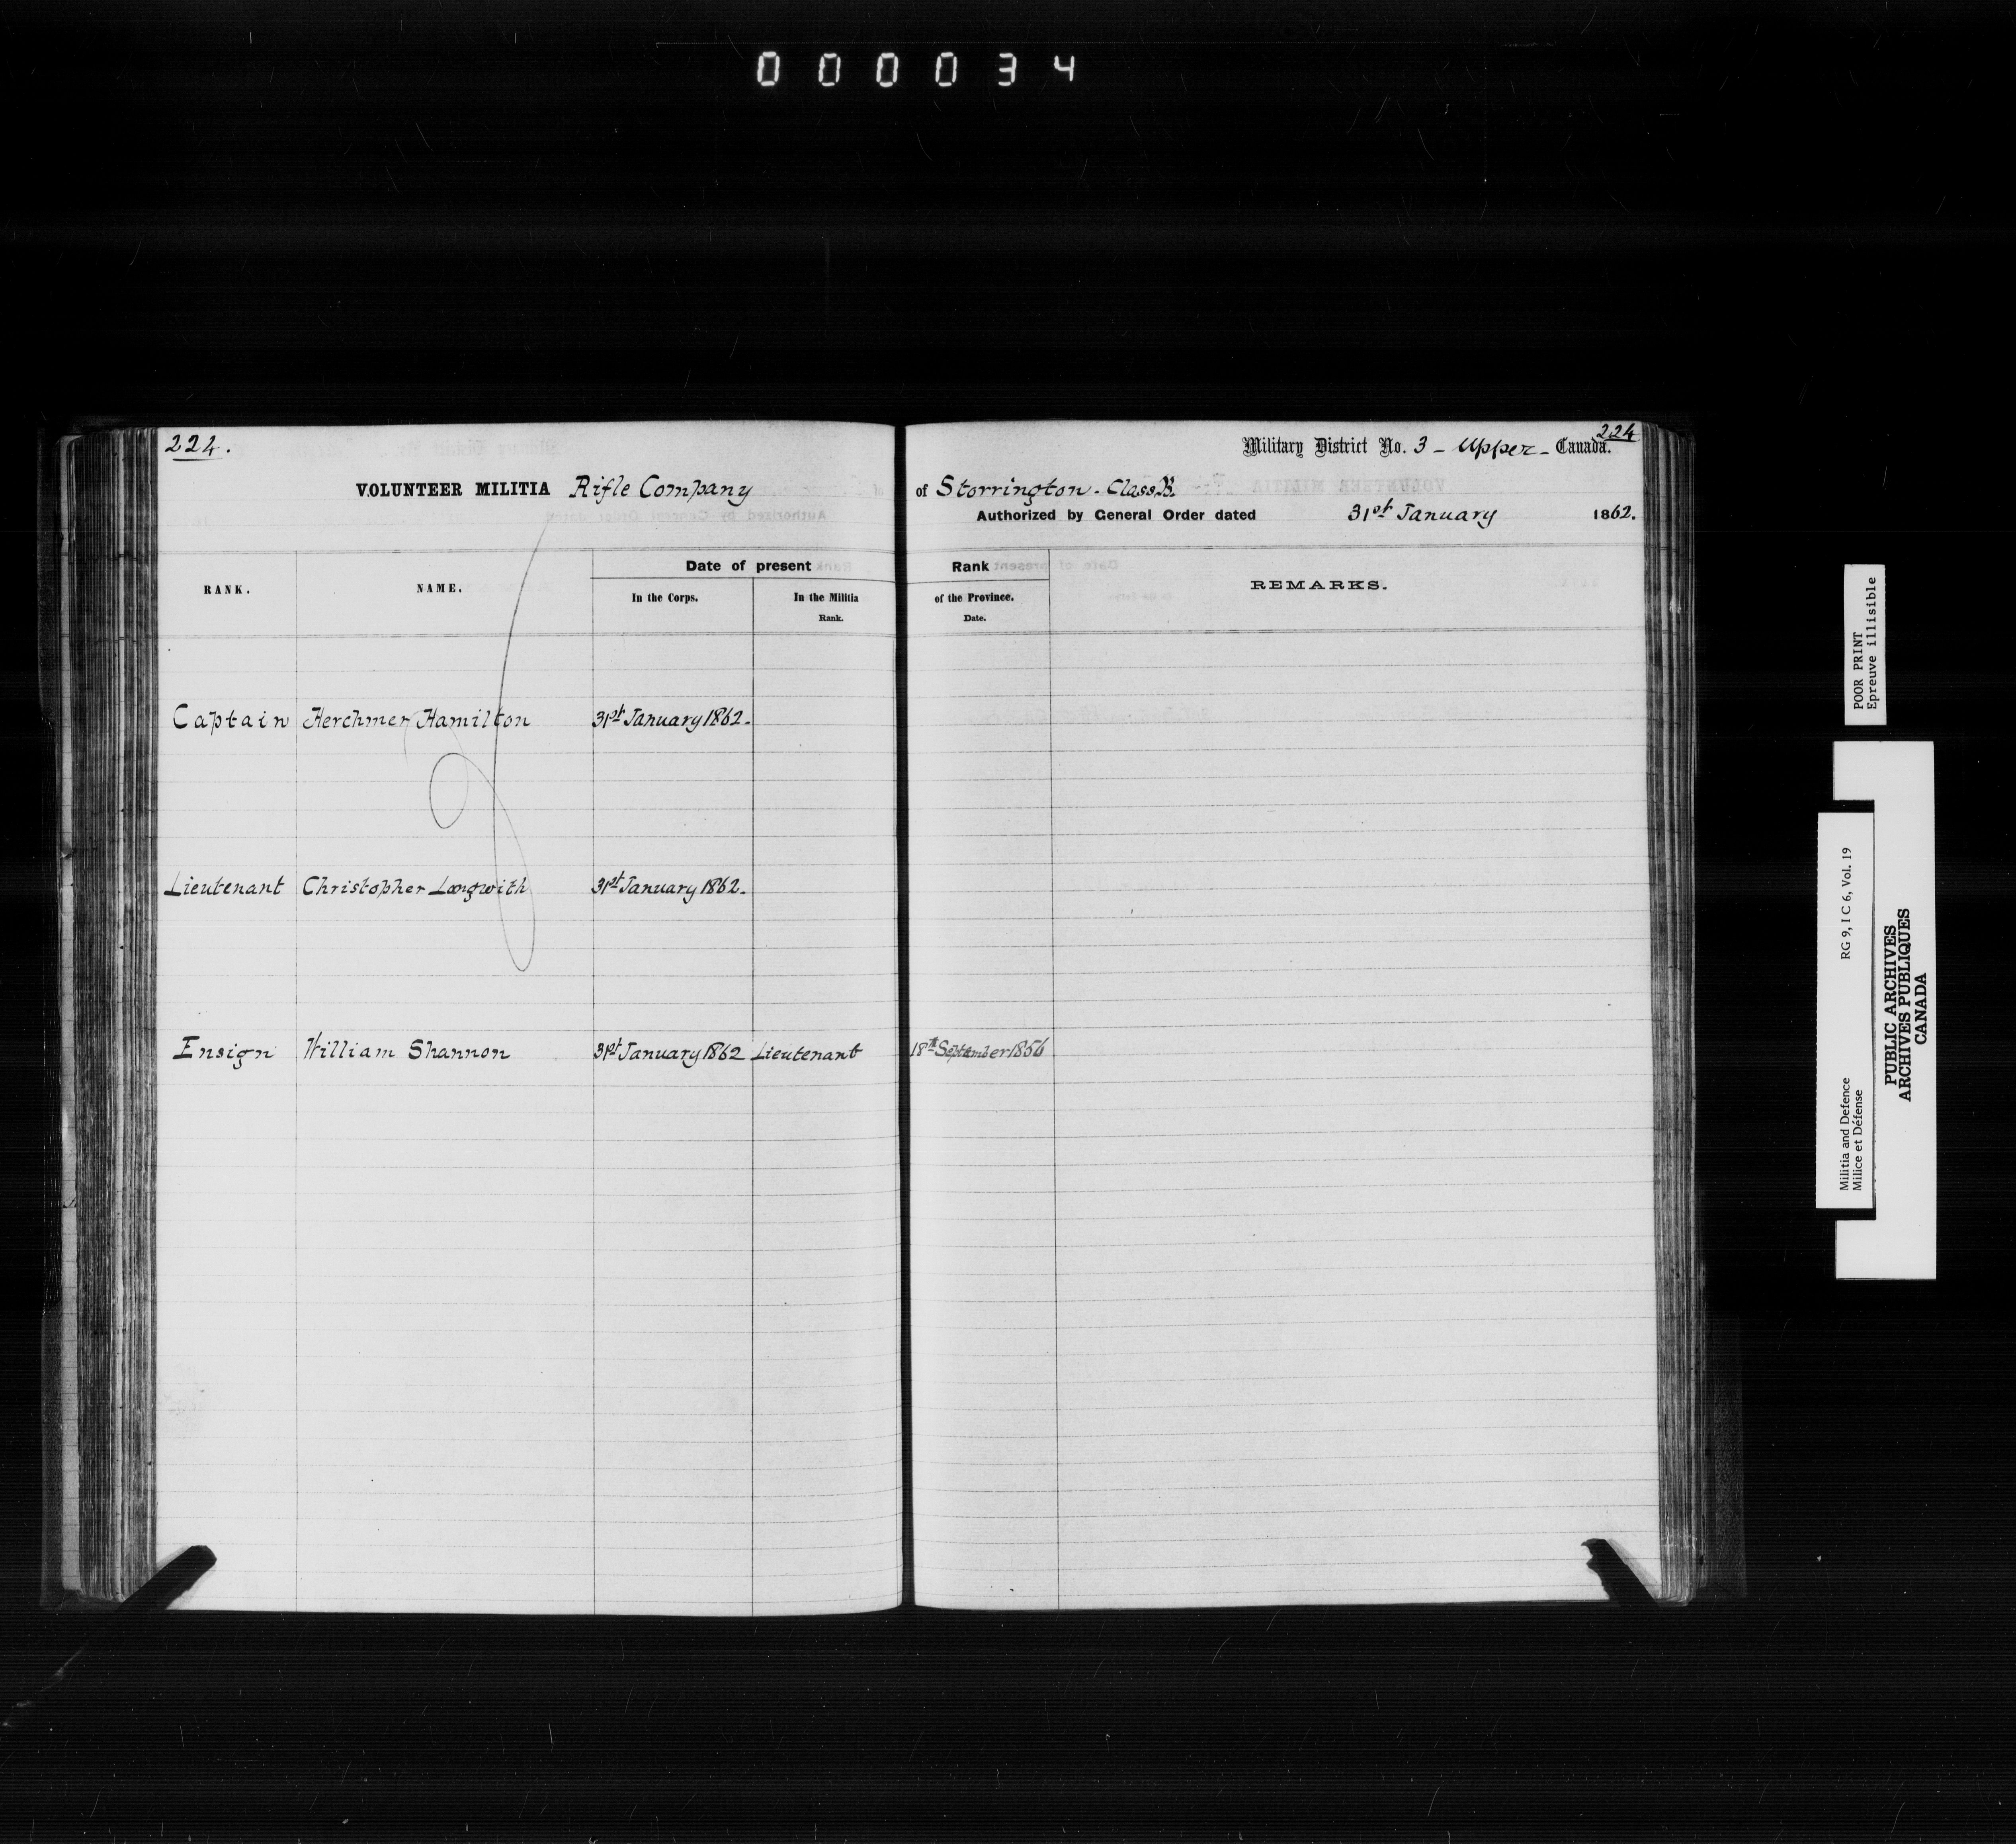 000034
224.
VOLUNTEER MILITIA Rifle Company
RANK.
NAME.
Date of present
In the Corps.
In the Militia
Rank.
Captain Herchmer Hamilton 31st January 1862.
Lieutenant Christopher Longwith 31st January 1862.
Ensign William Shannon 31st January 1862 Lieutenant
224
Military District No. 3 - Upper - Canada.
of Storrington. Class B.
Authorized by General Order dated 31st January 1862.
Rank
of the Province.
Date.
REMARKS.
18th September 1856
POOR PRINT
Epreuve illisible
Militia and Defence RG 9, I C 6, Vol. 19
Milice et Défense
PUBLIC ARCHIVES
ARCHIVES PUBLIQUES
CANADA